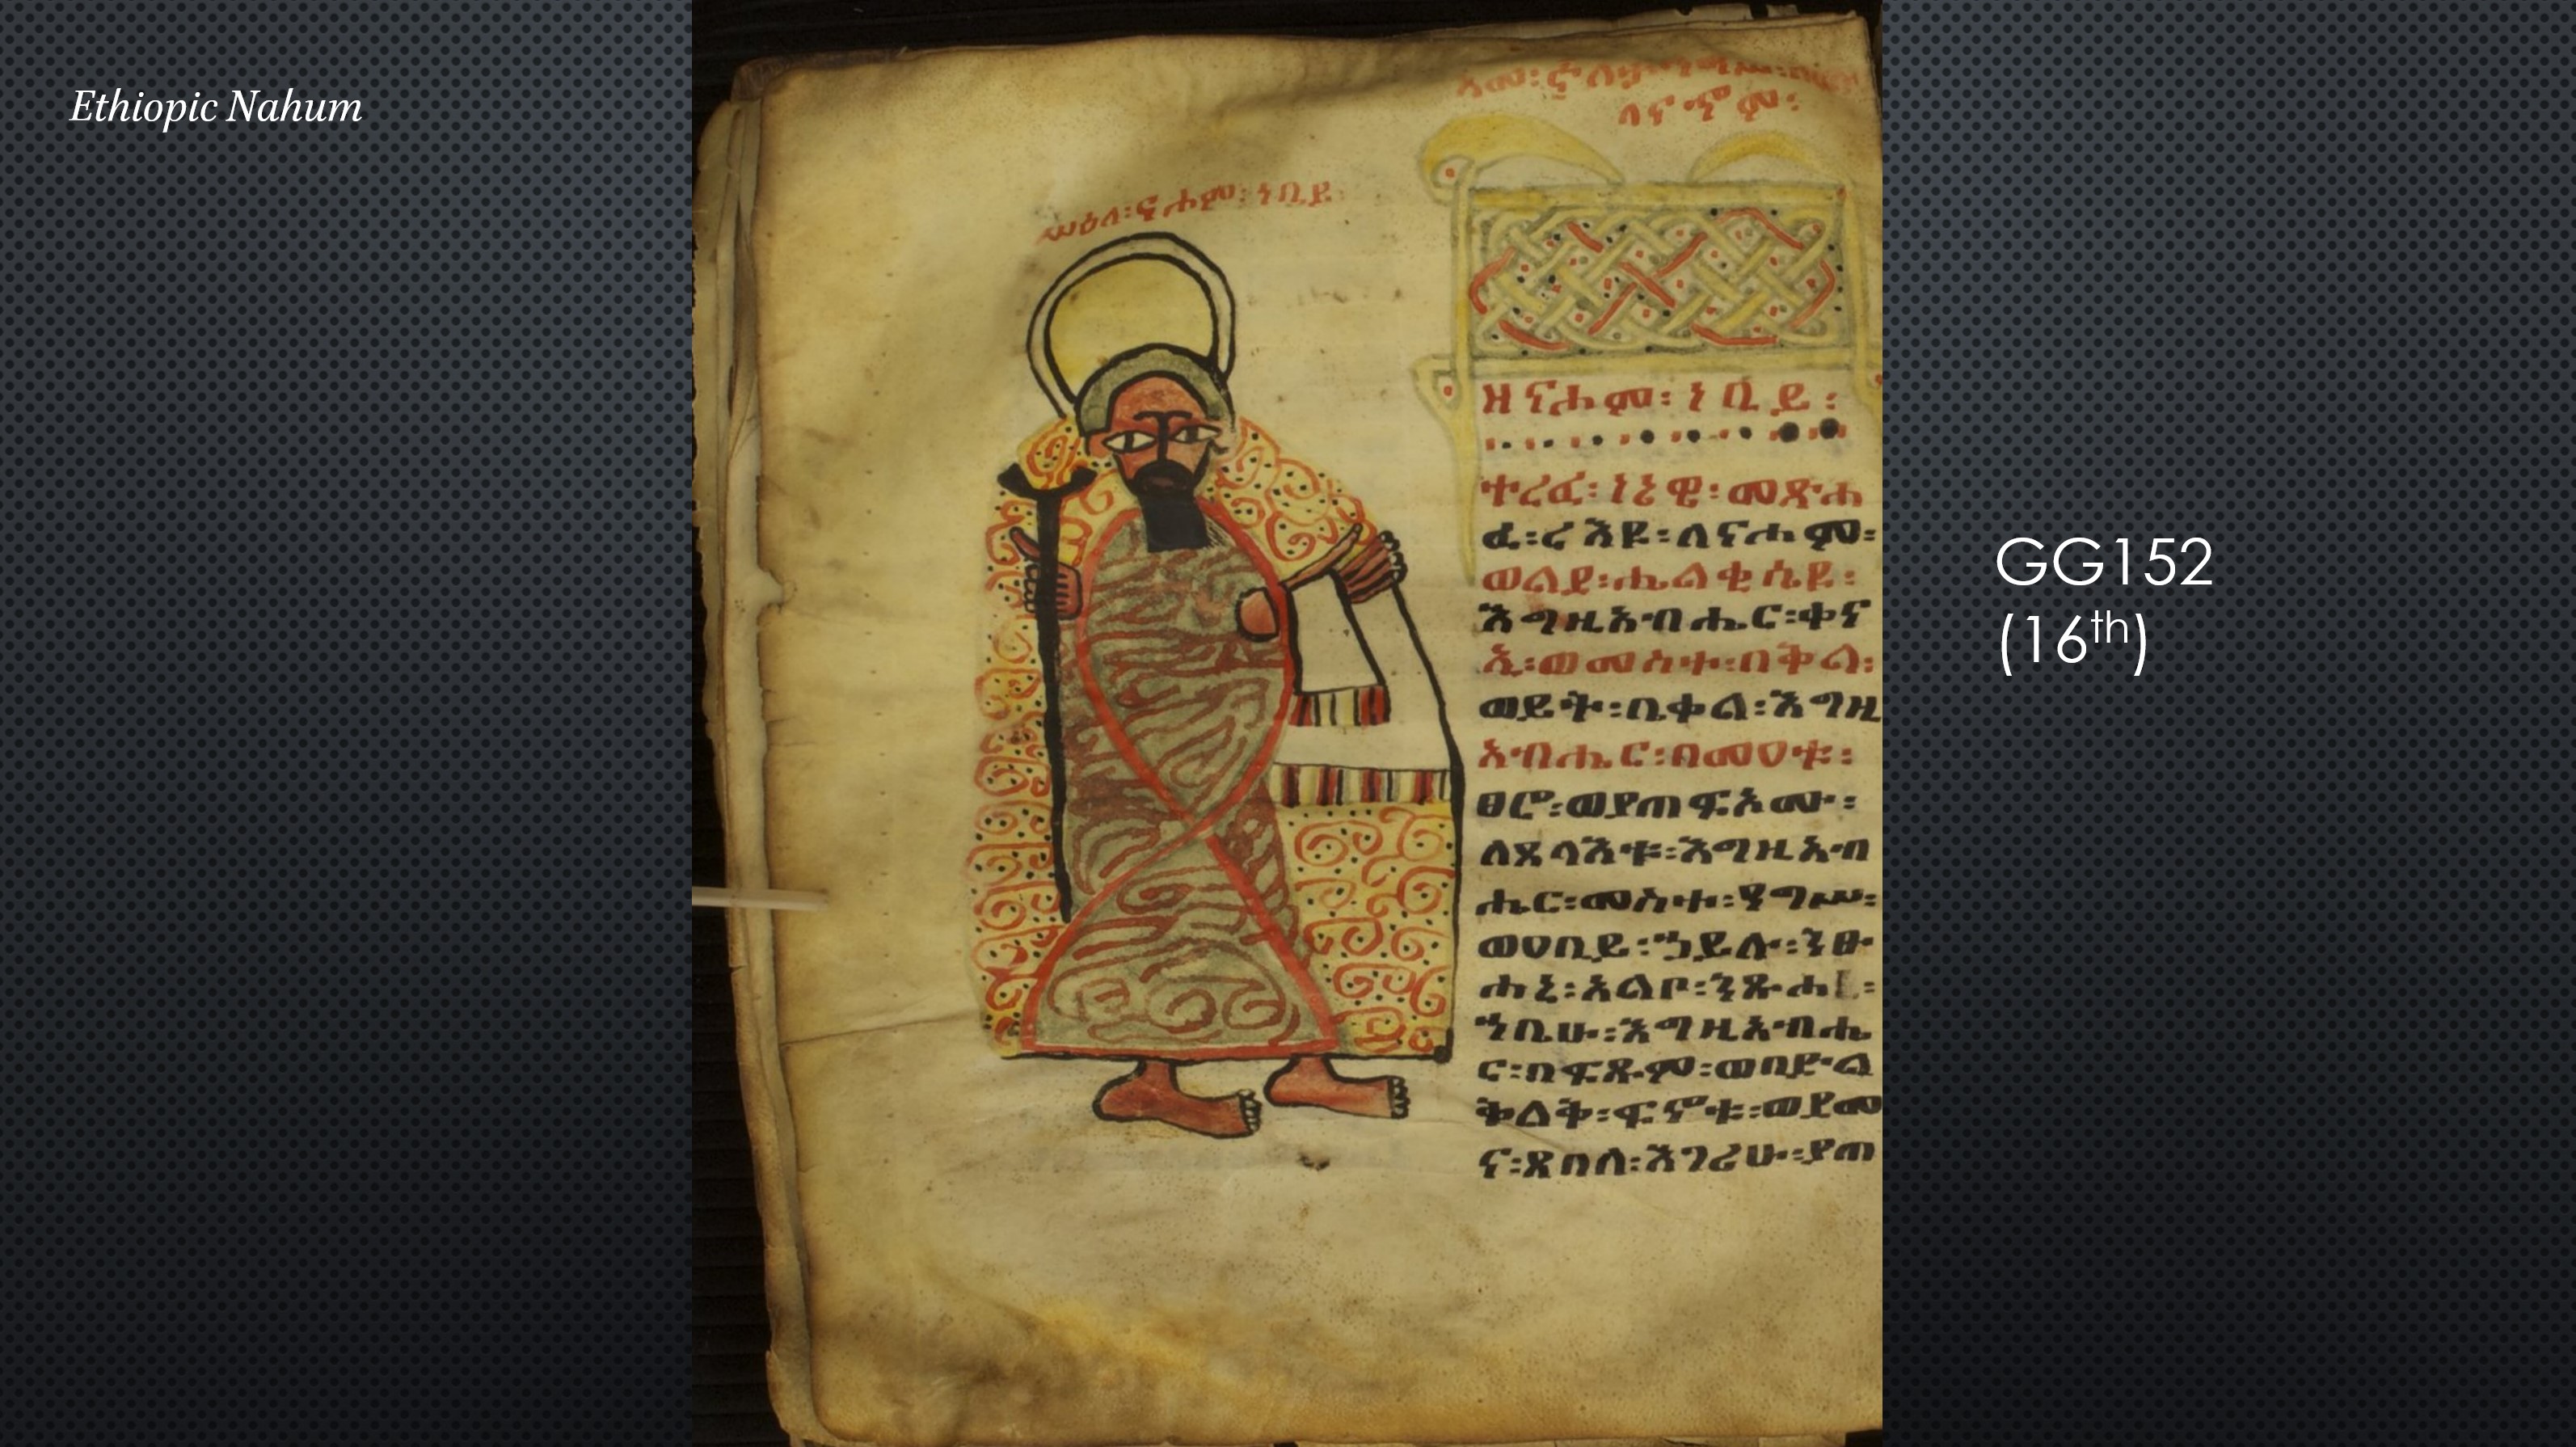 Ethiopic Nahum
ሥዕለ፡ናሖም፡ነቢይ
ዘናሖም፡ነቢይ፡
ተረፈ፡ነነዌ፡መጽሐ
ፈ፡ራእዩ፡ለናሖም፡
ወልደ፡ሔልቂሴዩ፡
እግዚአብሔር፡ቀና
ኢ፡ወመስተ፡በቅል፡
ወይት፡ቤቀል፡እግዚ
አብሔር፡በመዐቱ፡
ፀሮ፡ወያጠፍኦሙ፡
ለጸላእቱ፡እግዚአብ
ሔር፡መስተ፡ዔግሥ፡
ወዐቢይ፡ኃይሉ፡ንፁ
ሐኒ፡አልቦ፡ንጹሐ፡
ኀቤሁ፡እግዚአብሔ
ር፡በፍጹም፡ወበድል
ቅልቅ፡ፍኖቱ፡ወደመ
ና፡ጸበለ፡እገሪሁ፡ያጠ
GG152
(16th)